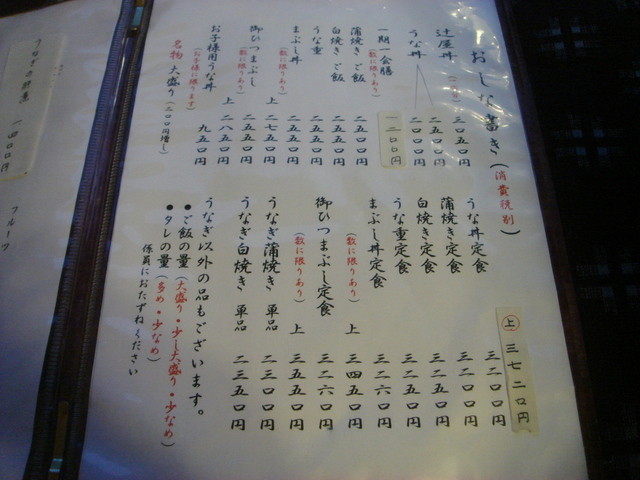 おしながき(消費税別)
辻屋丼
三〇五〇円
うな丼
二五〇〇円
二〇〇〇円
一期一会膳
(数に限りあり)
一二〇〇円
蒲焼きご飯
二五〇〇円
白焼きご飯
二五五〇円
うな重
二五五〇円
まぶし丼
二五五〇円
(数に限りあり)
上 二七五〇円
御ひつまぶし
(数に限りあり)
上 二八五〇円
お子様用うな丼
(お子様に限ります)
九五〇円
名物 大盛り(二〇〇円増し)
うな丼定食
三二〇〇円
上 三七二〇円
蒲焼き定食
三二〇〇円
白焼き定食
三二五〇円
うな重定食
三二五〇円
まぶし丼定食
三二六〇円
(数に限りあり)
上 三四五〇円
御ひつまぶし定食
三二六〇円
(数に限りあり)
上 三五五〇円
うなぎ蒲焼き 単品
二三〇〇円
うなぎ白焼き 単品
二三五〇円
うなぎ以外の品もございます。
●ご飯の量(大盛り・少し大盛り・少なめ)
●タレの量(多め・少なめ)
係員におたずねください
一四〇〇円